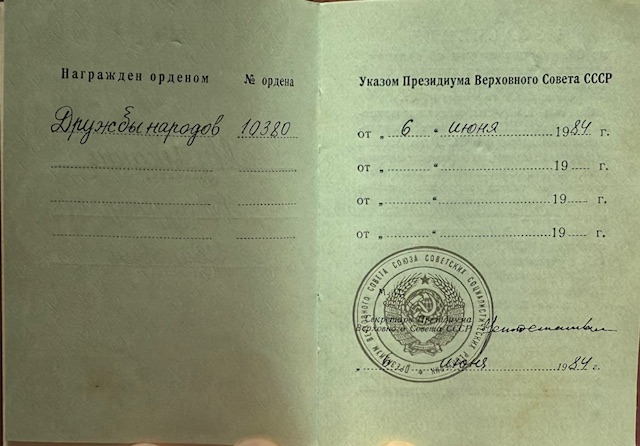 Награжден орденом
№ ордена
Дружбы народов
10380
Указом Президиума Верховного Совета СССР
от „ 6 “ июня 1984 г.
от „ “ 19 г.
от „ “ 19 г.
от „ “ 19 г.
ПРЕЗИДИУМ ВЕРХОВНОГО СОВЕТА СОЮЗА СОВЕТСКИХ СОЦИАЛИСТИЧЕСКИХ
М.
Секретарь Президиума
Верховного Совета СССР
июня 1984 г.